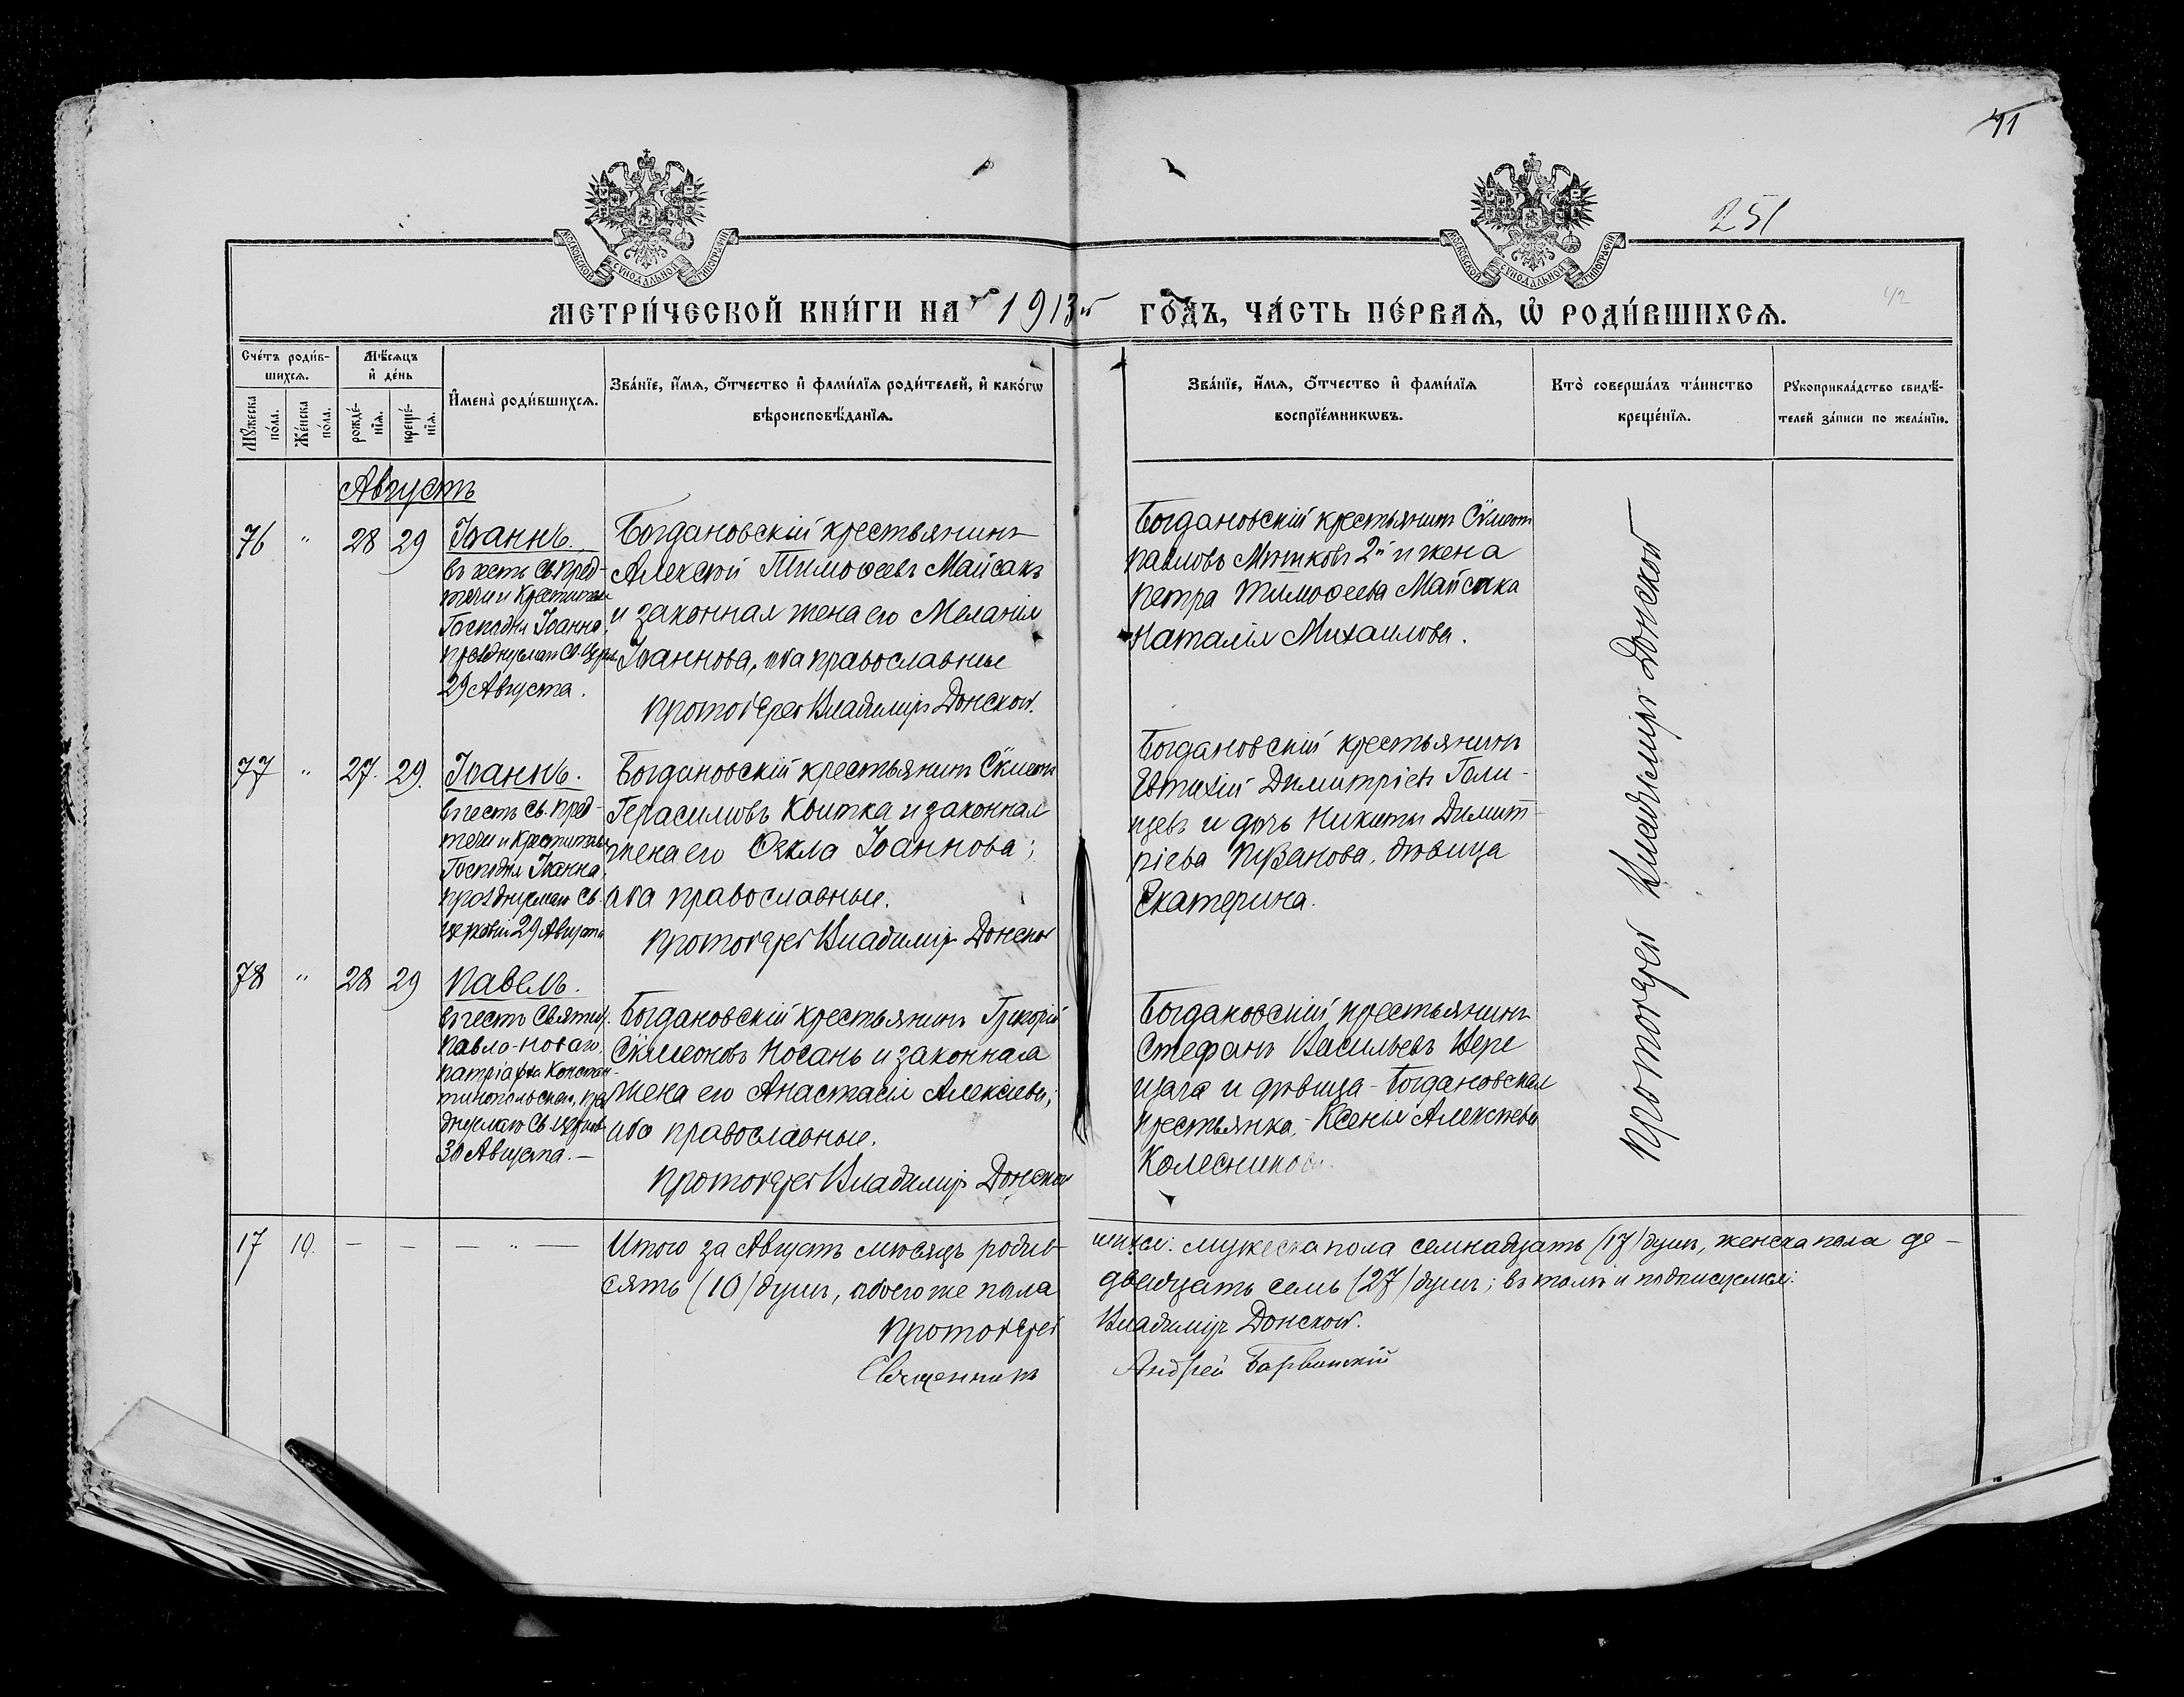 41
251
42
МОСКОВСКОЙ СѴНОДАЛЬНОЙ ТИПОГРАФІИ
МОСКОВСКОЙ СѴНОДАЛЬНОЙ ТИПОГРАФІИ
МЕТРИ́ЧЕСКОЙ КНИ́ГИ НА 1913й ГО́ДЪ, ЧА́СТЬ ПЕ́РВАѦ, Ѡ҆ РОДИ́ВШИХСѦ.
Сче́тъ роди́в-
шихсѧ.
Мꙋ́жеска
по́ла.
Же́нска
по́ла.
Мѣ́сѧцъ
и҆ де́нь
рожде́-
нїѧ.
креще́-
нїѧ.
И҆мена̀ роди́вшихсѧ.
Зва́нїе, и҆́мѧ, ѻ҆́тчество и҆ фами́лїѧ роди́телей, и҆ како́гѡ
вѣроисповѣ́данїѧ.
Зва́нїе, и҆́мѧ, ѻ҆́тчество и҆ фами́лїѧ
воспрїе́мникѡвъ.
Кто̀ соверша́лъ та́инство
креще́нїѧ.
Рꙋкоприкла́дство свидѣ́-
телей за́писи по жела́нїю.
Августъ
76 " 28 29
Іоаннъ.
въ честь Св. Пред-
течи и Крестителя
Господня Іоанна,
празднуемаго Св. Церк.
29 Августа.
Богдановскій крестьянинъ
Алексій Тимоѳеевъ Майсакъ
и законная жена его Меланія
Іоаннова, оба православные
Протоіерей Владиміръ Донской.
Богдановскій крестьянинъ Сѵмеонъ
Павловъ Митковъ 2й и жена
Петра Тимоѳеева Майсака
Наталія Михаилова.
77 " 27. 29.
Іоаннъ.
въ честь Св. Пред-
течи и Крестителя
Господня Іоанна,
празднуемаго Св.
церковію 29 Августа
Богдановскій крестьянинъ Сѵмеонъ
Герасимовъ Квитка и законная
жена его Ѳекла Іоаннова;
оба православные.
Протоіерей Владиміръ Донской
Богдановскій крестьянинъ
Евтихій Димитріевъ Голи-
цевъ и дочь Никиты Димит-
ріева Пузанова, дѣвица
Екатерина.
78 " 28 29
Павелъ.
въ честь Святит.
Павла-новаго
патріарха Констан-
тинопольскаго, праз
днуемаго Св. Церков
30 Августа.—
Богдановскій крестьянинъ Григорій
Сѵмеоновъ Носань и законная
жена его Анастасія Алексіева;
оба православные.
Протоіерей Владиміръ Донской
Богдановскій крестьянинъ
Стефанъ Васильевъ Вере
щага и дѣвица - Богдановская
крестьянка, - Ксенія Алексѣева
Колесникова.
Протоіерей Владиміръ Донской
17 10. — — — " —
Итого за Августъ мѣсяцъ родив-
шихся: мужеска пола семнадцать (17) душъ, женска пола де-
сять (10) душъ, обоего же пола
двадцать семь (27) душъ; въ томъ и подписуемся:
Протоіерей Владиміръ Донской.
Священникъ Андрей Барвинскій